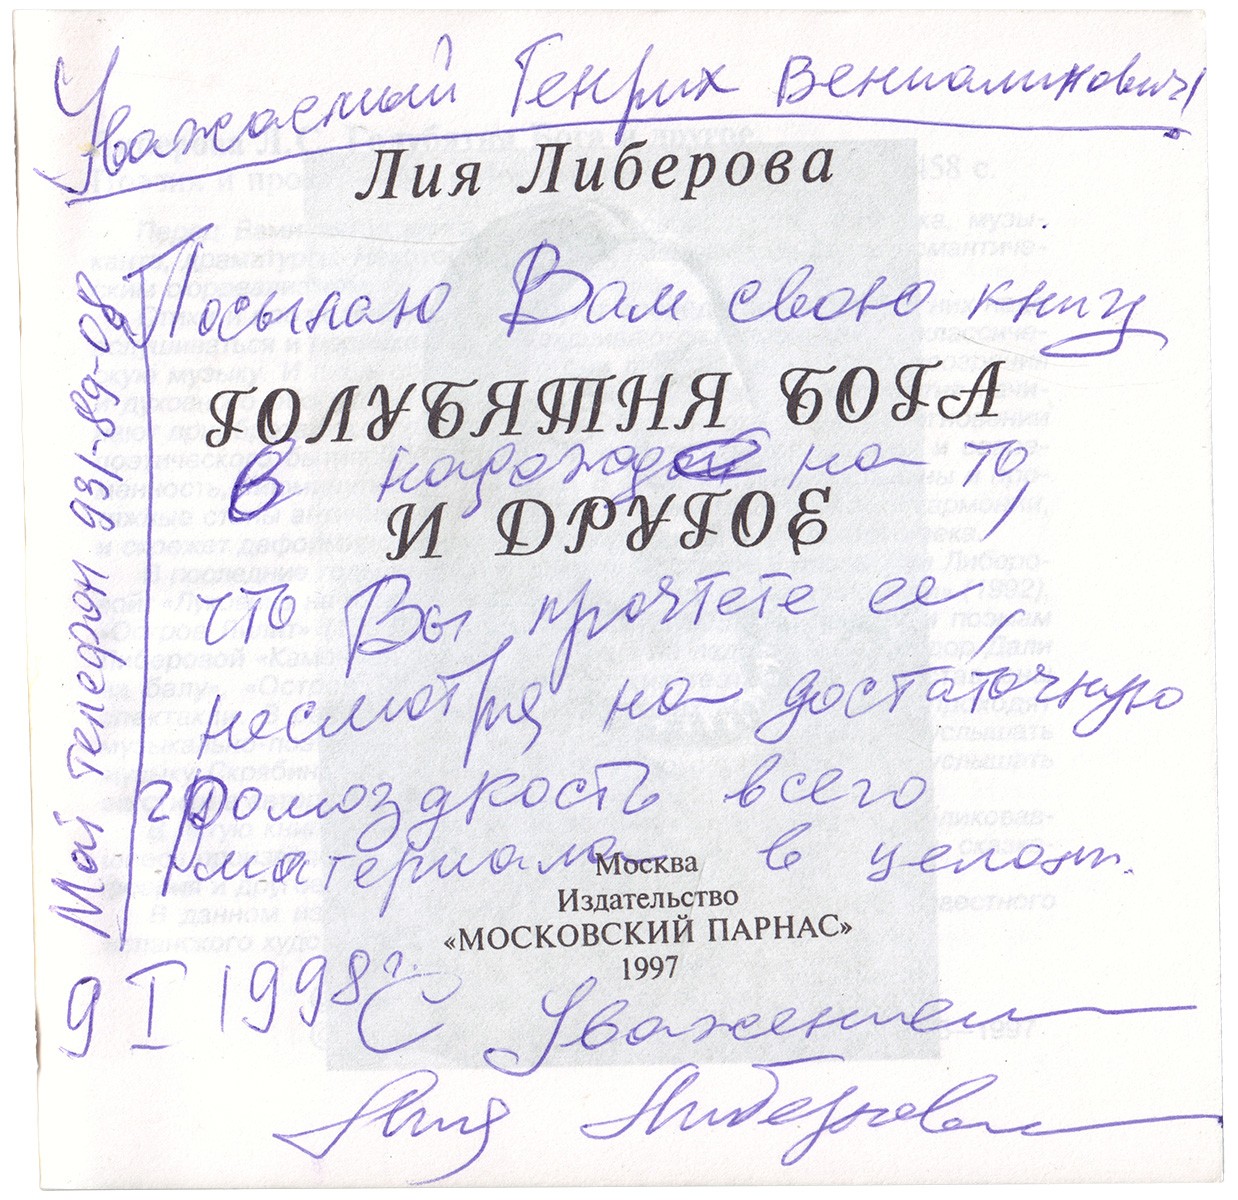 Уважаемый Генрих Вениаминович!
Лия Либерова
Посылаю Вам свою книгу
ГОЛУБЯТНЯ БОГА
В надежде на то,
И ДРУГОЕ
что Вы прочтете ее,
несмотря на достаточную
громоздкость всего
материала в целом.
Москва
Издательство
«МОСКОВСКИЙ ПАРНАС»
1997
9 I 1998 г.
С Уважением
Лия Либерова
Мой телефон 991-89-08